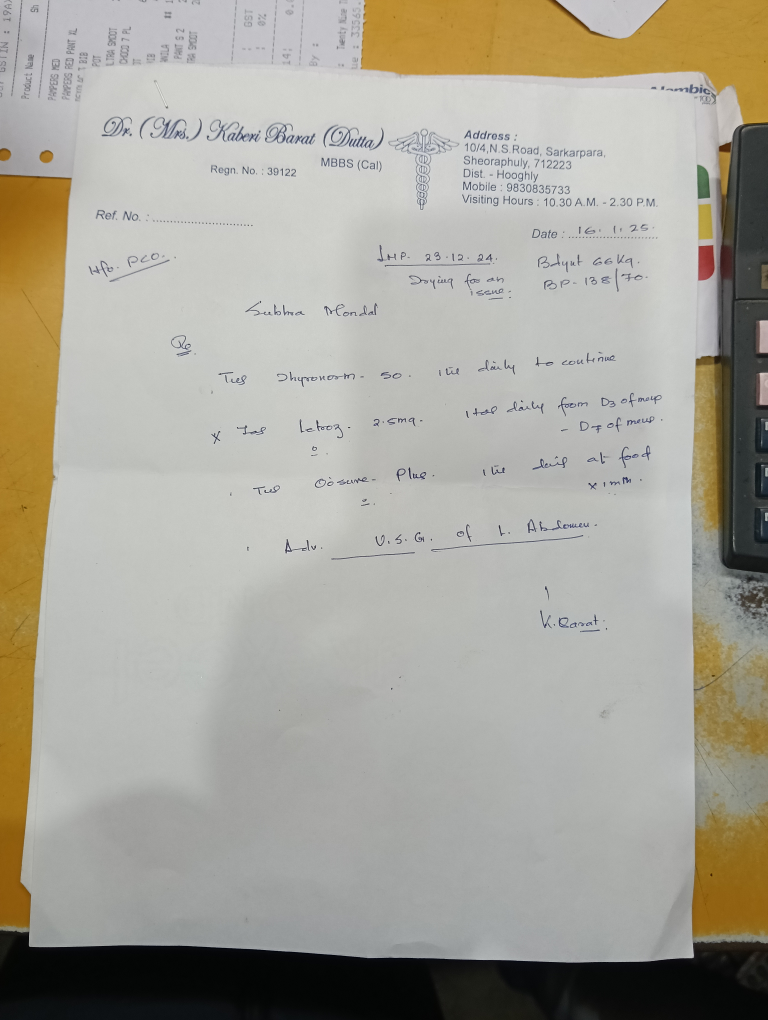 GSTIN : 19A
Product Name
Sh
PAMPERS MED
PAMPERS RED PANT XL
CHOCO 7 PL
PANT S 2
GST
0%
14:
By :
Twenty Nine
33565.
Dr. (Mrs.) Kaberi Barat (Dutta)
MBBS (Cal)
Regn. No. : 39122
Address :
10/4,N.S.Road, Sarkarpara,
Sheoraphuly, 712223
Dist. - Hooghly
Mobile : 9830835733
Visiting Hours : 10.30 A.M. - 2.30 P.M.
Ref. No. :
Date : 16.1.25.
H/o. PCO.
LMP. 23.12.24.
Trying for an
issue.
66 Kg.
BP- 138/70.
Subhra Mondal
Rx
Thyronorm - 50. daily to continue
x Tab Letroz. 2.5mg. 1 tab daily from D3 of mens
- D7 of mens.
Plus. at food
x 1 mth.
Adv. U.S.G. of L. Abdomen.
K. Barat.